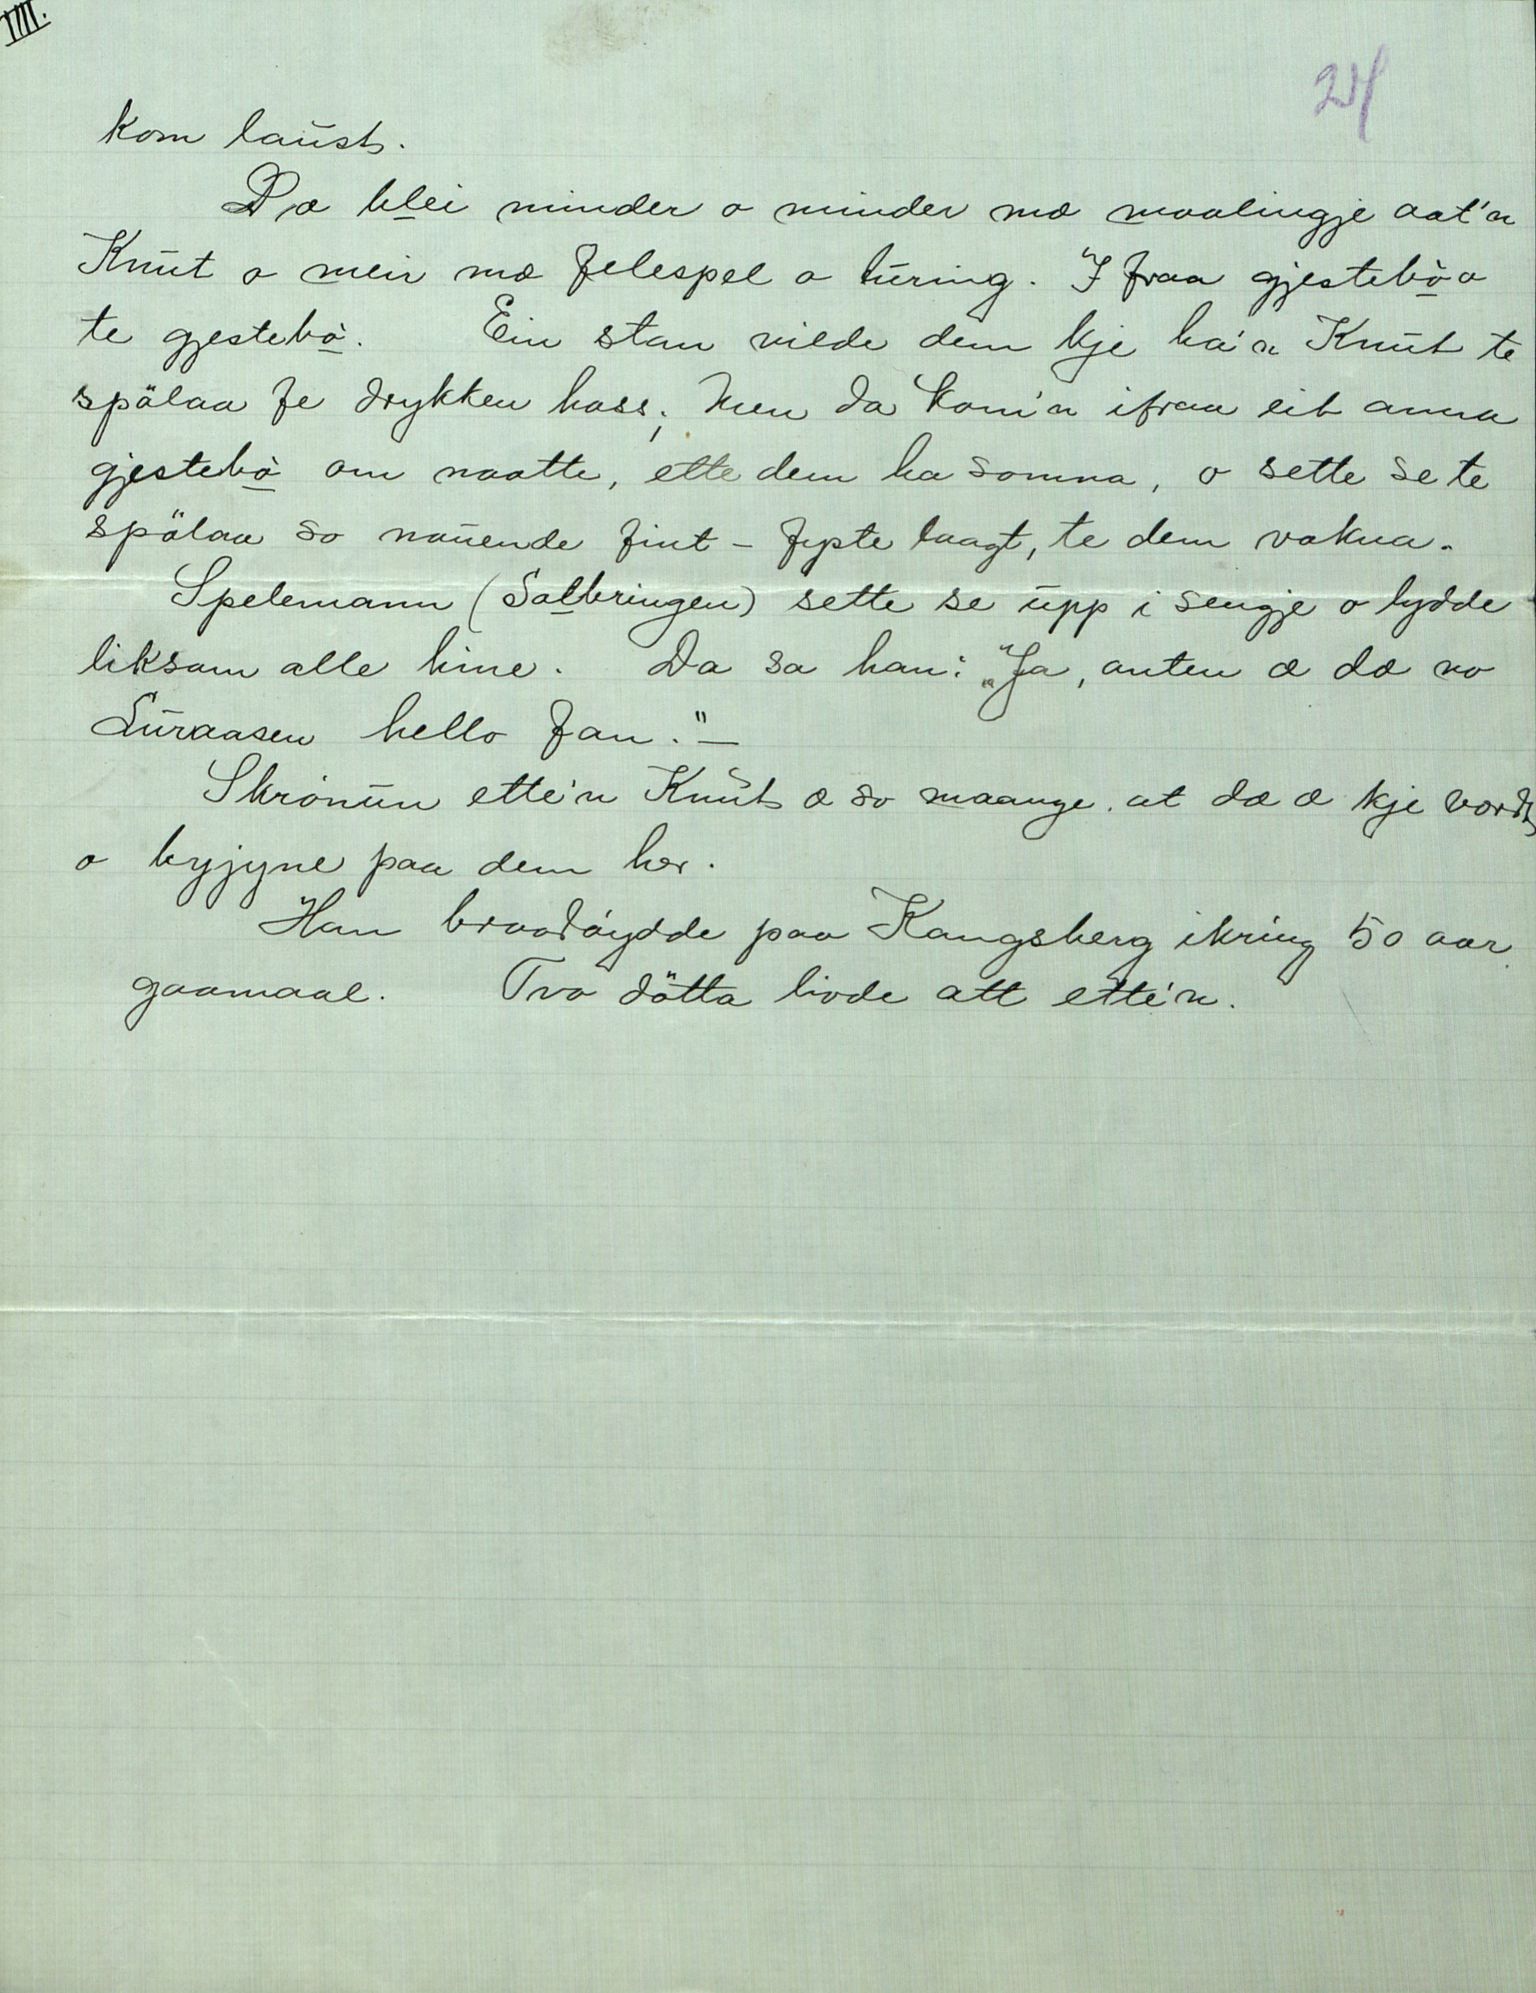 VIII.
24
kom laust.
Dæ blei minder o minder mæ maalingje aat'n
Knut o meir mæ felespel o turing. I fraa gjestebò o
te gjestebò. Ein stan vilde dem kje ha'n Knut te
spölaa fe drykken hass; Men da kom'n ifraa eit anna
gjestebò om naatte, ette dem ha somna, o sette se te
spölaa so nauende fint - fyste laagt, te dem vakna.
Spelemann (Solbringen) sette se upp i sengje o lydde
liksom alle hine. Da sa han: "Ja, anten æ dæ no
Luraasen hello fan." -
Skrònun ette'n Knut æ so maange. at dæ æ kje vordt
o byjyne paa dem her.
Han braadòydde paa Kangsberg ikring 50 aar
gaamaal. Tvo dötta livde att ette'n.